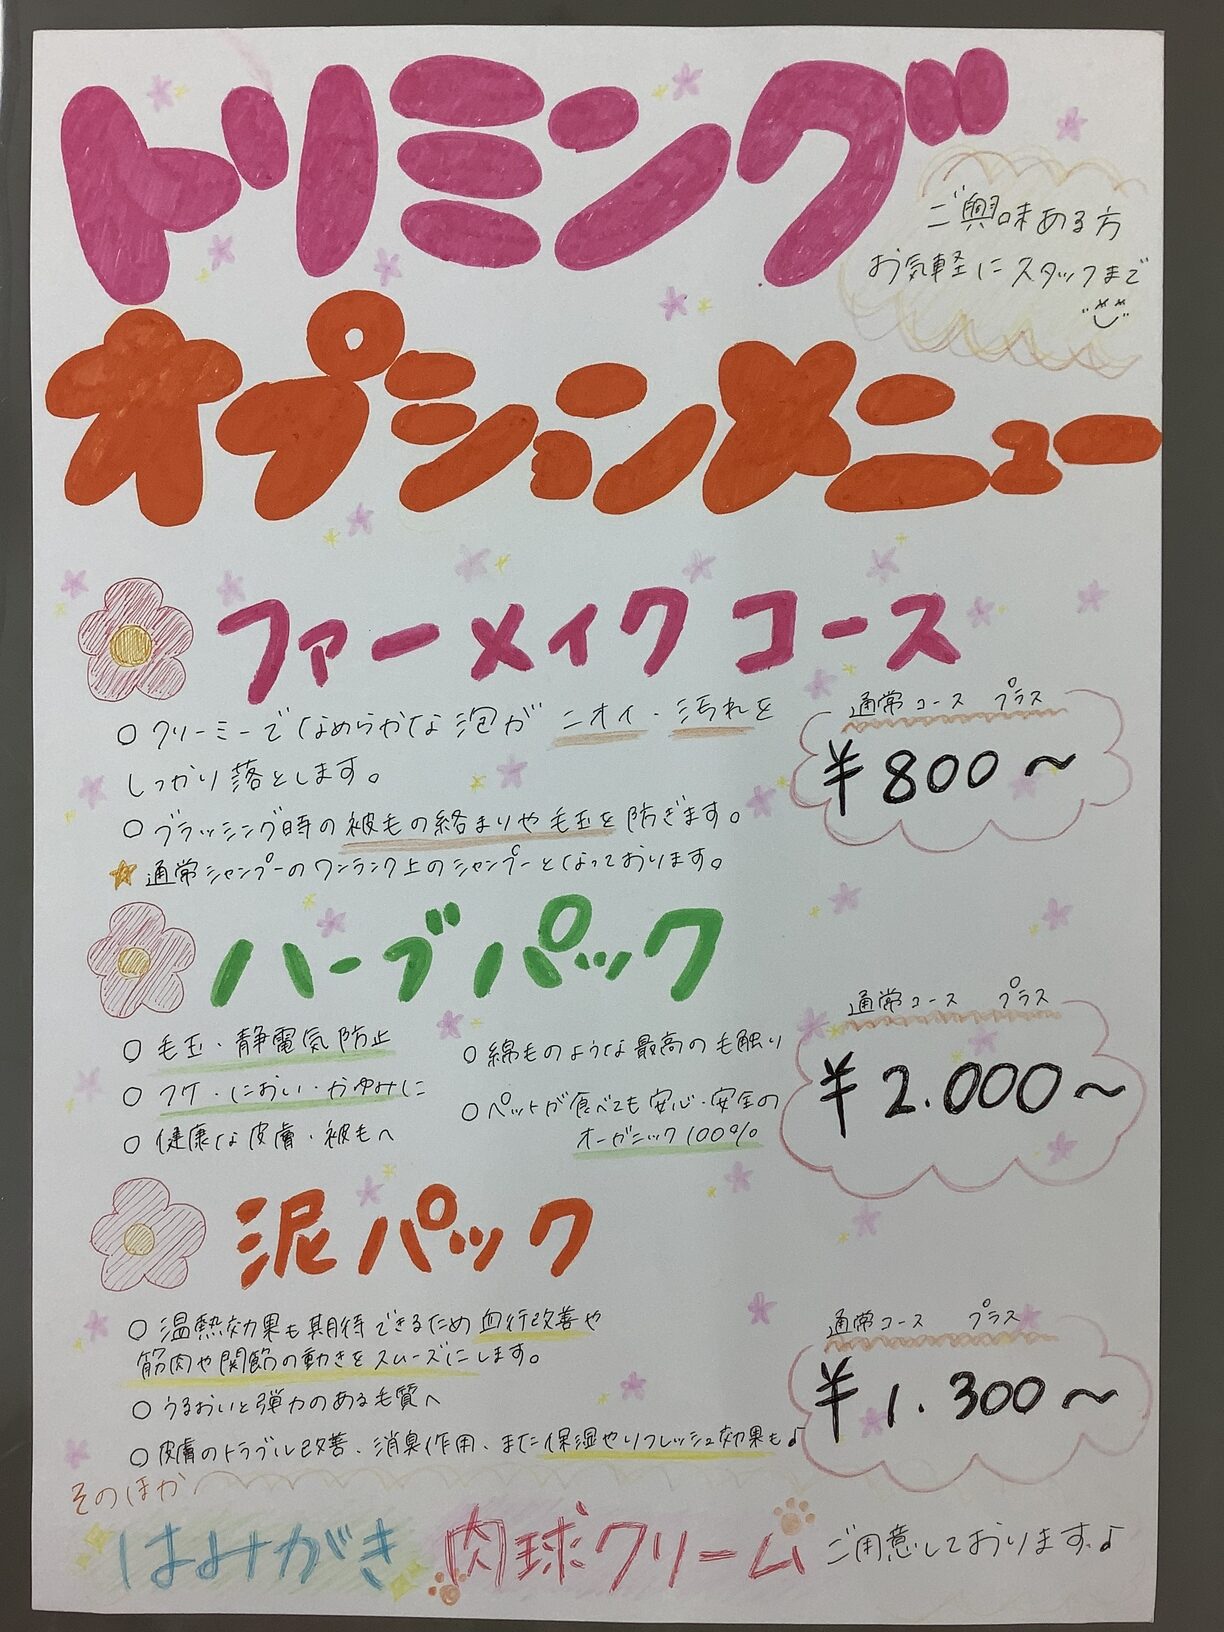 トリミング
ご興味ある方
お気軽にスタッフまで
オプションメニュー
ファーメイクコース
○ クリーミーでなめらかな泡がニオイ・汚れを
しっかり落とします。
○ ブラッシング時の被毛の絡まりや毛玉を防ぎます。
☆ 通常シャンプーのワンランク上のシャンプーとなっております。
通常コース プラス
¥800～
ハーブパック
○ 毛玉・静電気防止
○ フケ・におい・かゆみに
○ 健康な皮膚・被毛へ
○ 綿毛のような最高の毛触り
○ ペットが食べても安心・安全の
オーガニック100%
通常コース プラス
¥2.000～
泥パック
○ 温熱効果も期待できるため血行改善や
筋肉や関節の動きをスムーズにします。
○ うるおいと弾力のある毛質へ
○ 皮膚のトラブル改善、消臭作用、また保湿やリフレッシュ効果も♪
通常コース プラス
¥1.300～
そのほか
はみがき 肉球クリーム ご用意しております♪